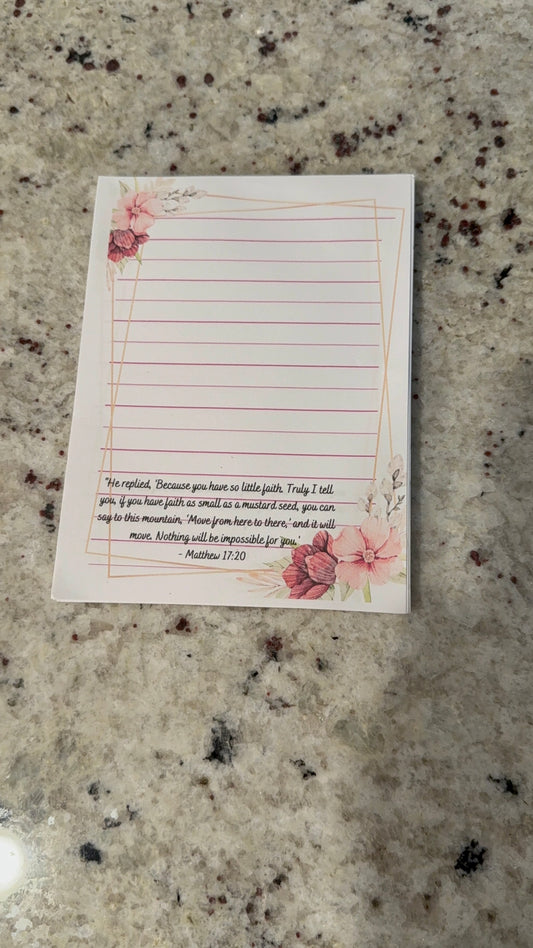 "He replied, 'Because you have so little faith. Truly I tell
you, if you have faith as small as a mustard seed, you can
say to this mountain, 'Move from here to there,' and it will
move. Nothing will be impossible for you.'
- Matthew 17:20